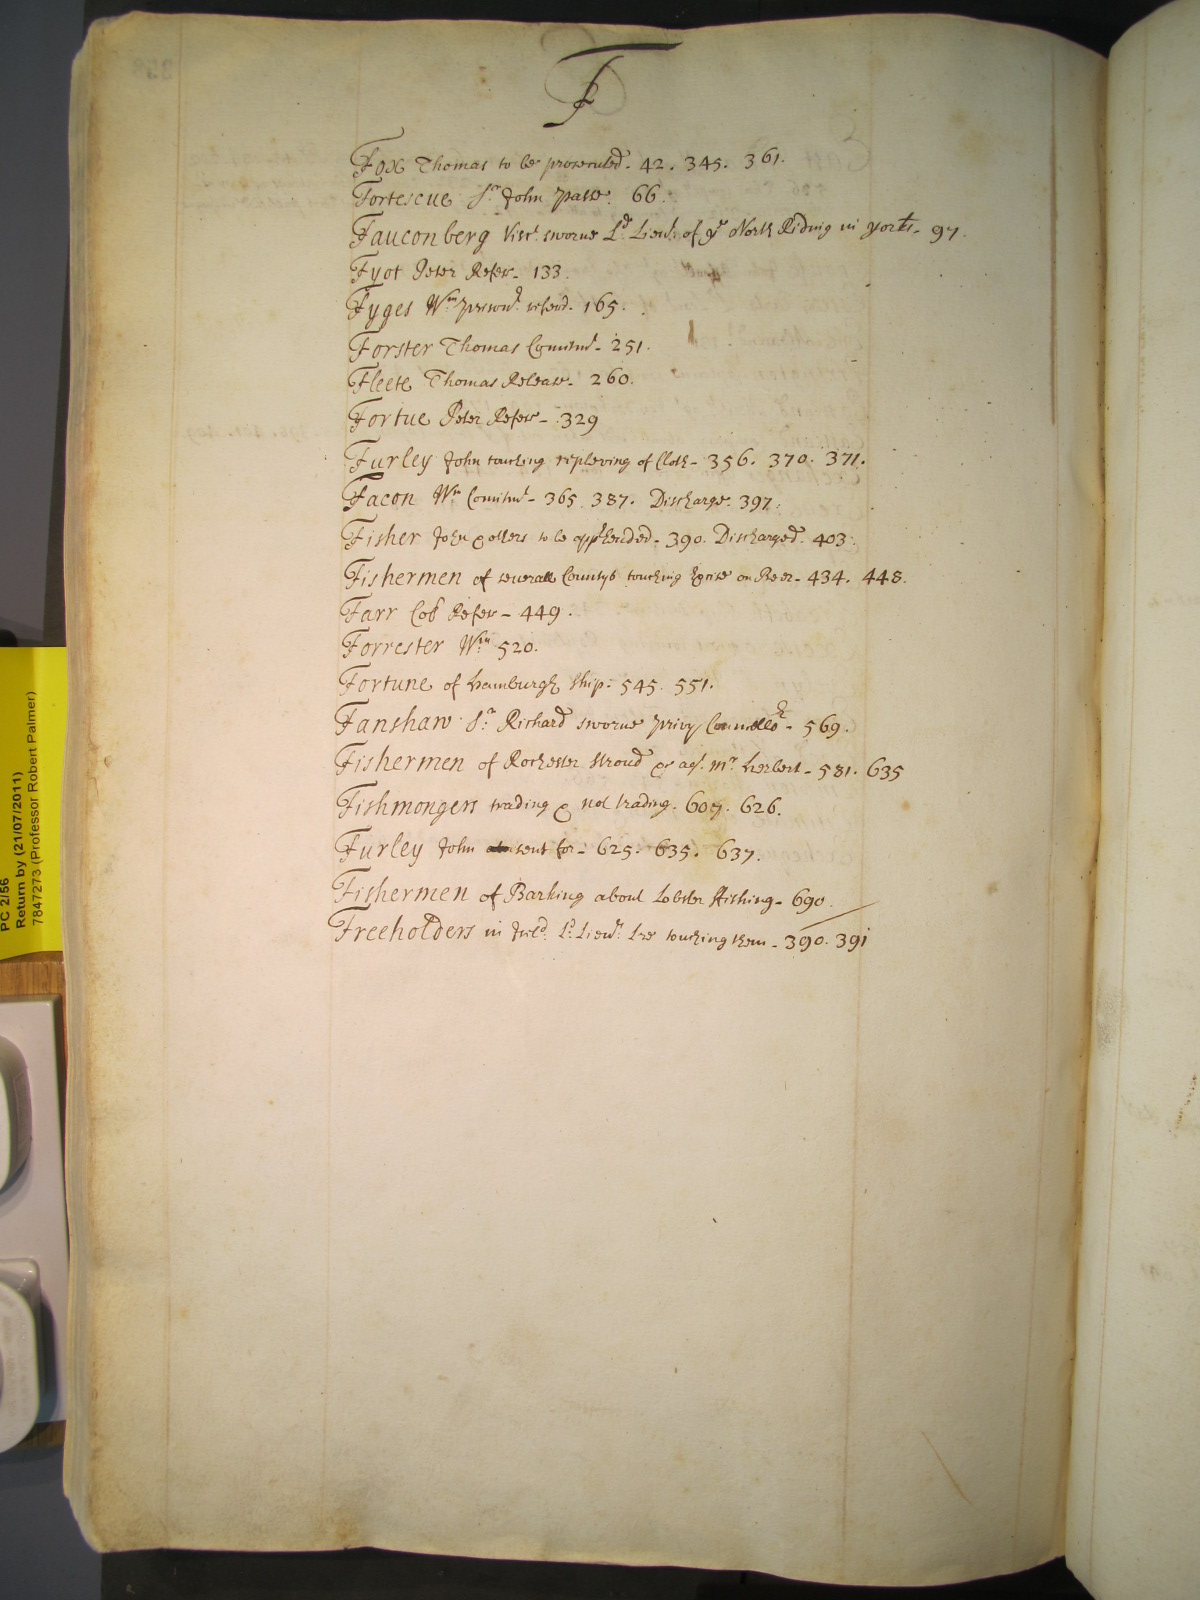 F
Fox Thomas to be prosecuted. 42. 345. 361.
Fortescue Sr John Passe. 66.
Fauconberg Visct. sworne Ld. Lieut. of ye North Riding in Yorks. 97.
Fyot Peter Refer. 133.
Fyges Wm. referd. 165.
Forster Thomas Comitmt. 251.
Fleete Thomas Release. 260.
Fortue Peter Refer. 329
Furley John touching repleving of Cloth. 356. 370. 371.
Facon Wm Comitmt. 365. 387. Discharge. 397.
Fisher John & others to be apphended. 390. Discharged. 403.
Fishermen of severall Countys touching Excise on Beer. 434. 448.
Farr Col Refer. 449.
Forrester Wm. 520.
Fortune of Hamburgh Ship. 545. 551.
Fanshaw Sr. Richard sworne Privy Councellor. 569.
Fishermen of Rochester Stroud &c agt. Mr. Herbert. 581. 635
Fishmongers trading & not trading. 607. 626.
Furley John sent for. 625. 635. 637.
Fishermen of Barking about Lobster ffishing. 690.
Freeholders in Ireld. Ld. Lieut. Lre touching them. 390. 391
PC 2/56
Return by (21/07/2011)
7847273 (Professor Robert Palmer)